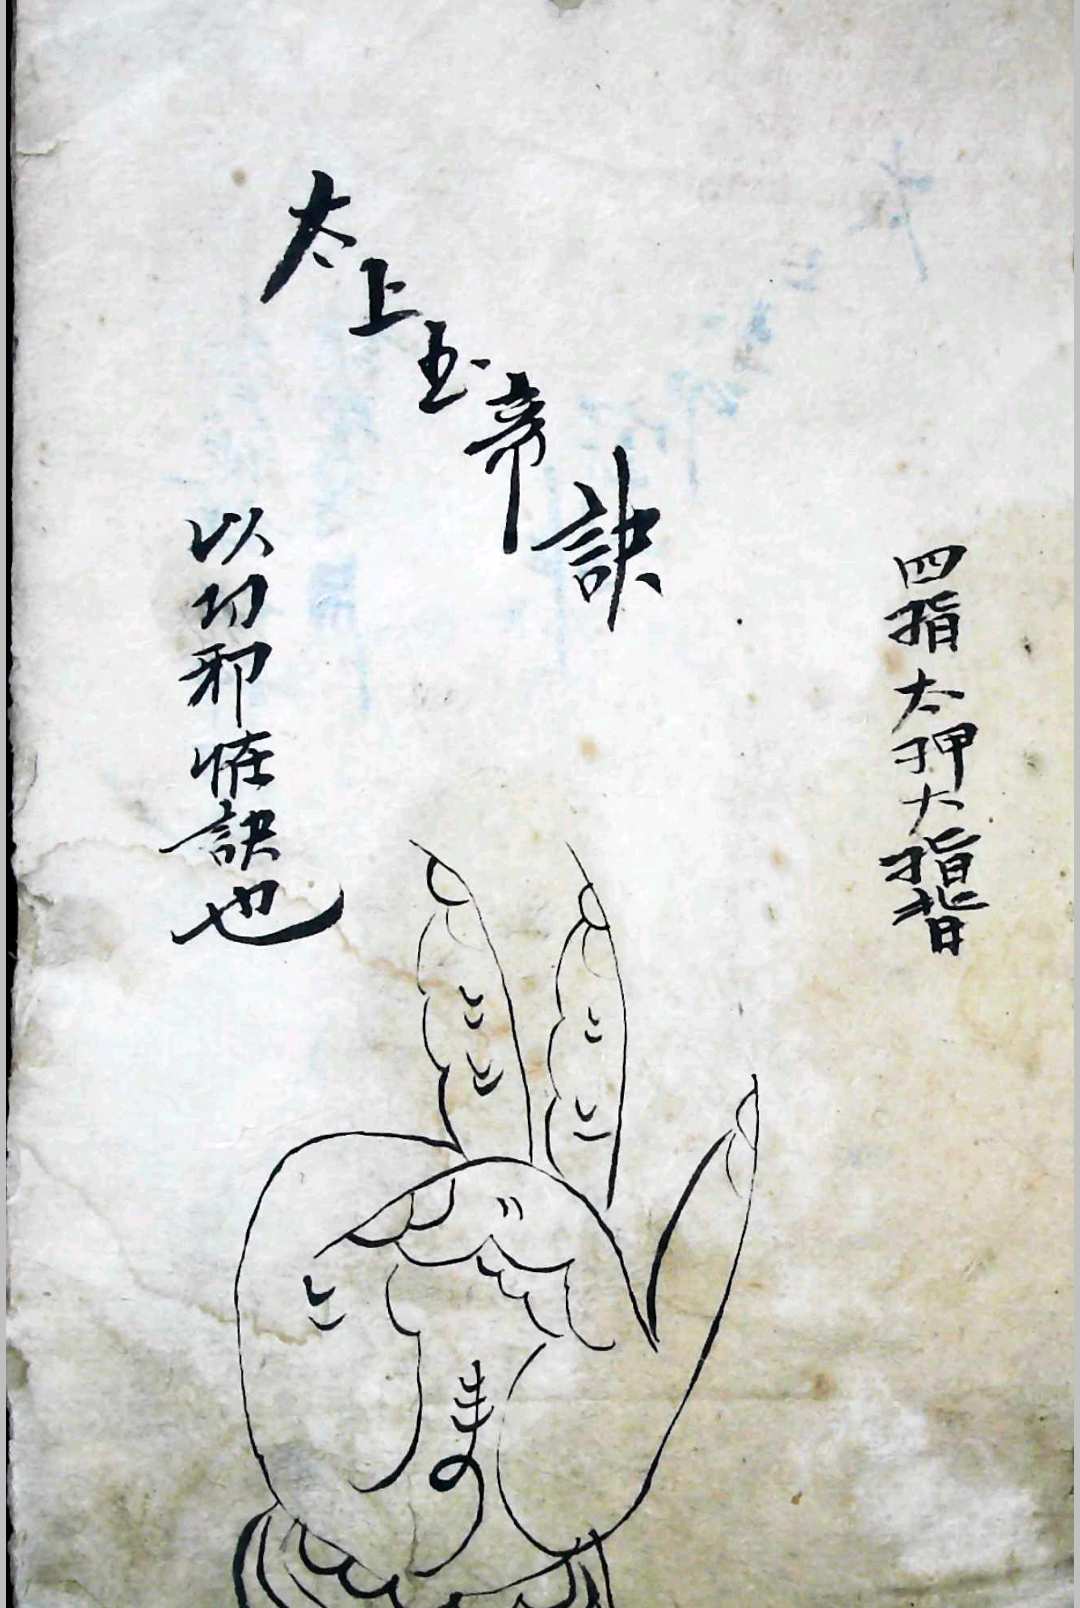 太上玉帝訣
四指太押大指背
以切邪恠訣也